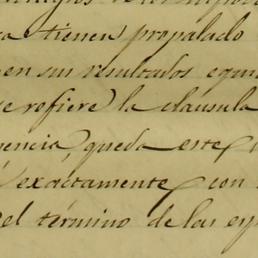 a tienen propalado
en sus resultados equi
e refiere) la clausula
uencia, queda este
exactamente con
el término de las esp